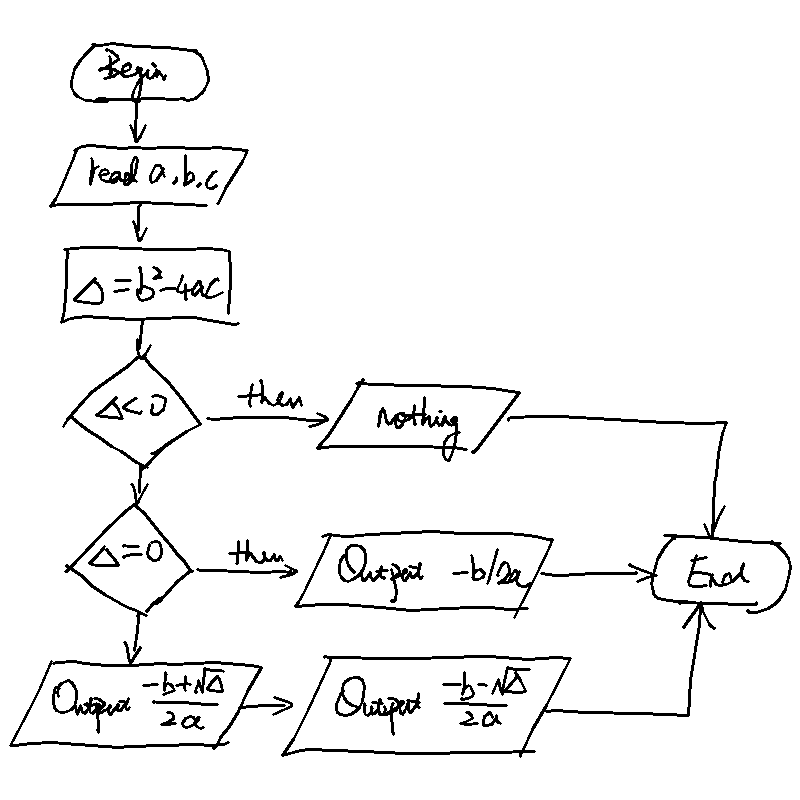 Begin
read a, b, c
Δ = b² - 4ac
Δ < 0
then
nothing
Δ = 0
then
Output -b/2a
End
Output (-b+√Δ)/2a
Output (-b-√Δ)/2a